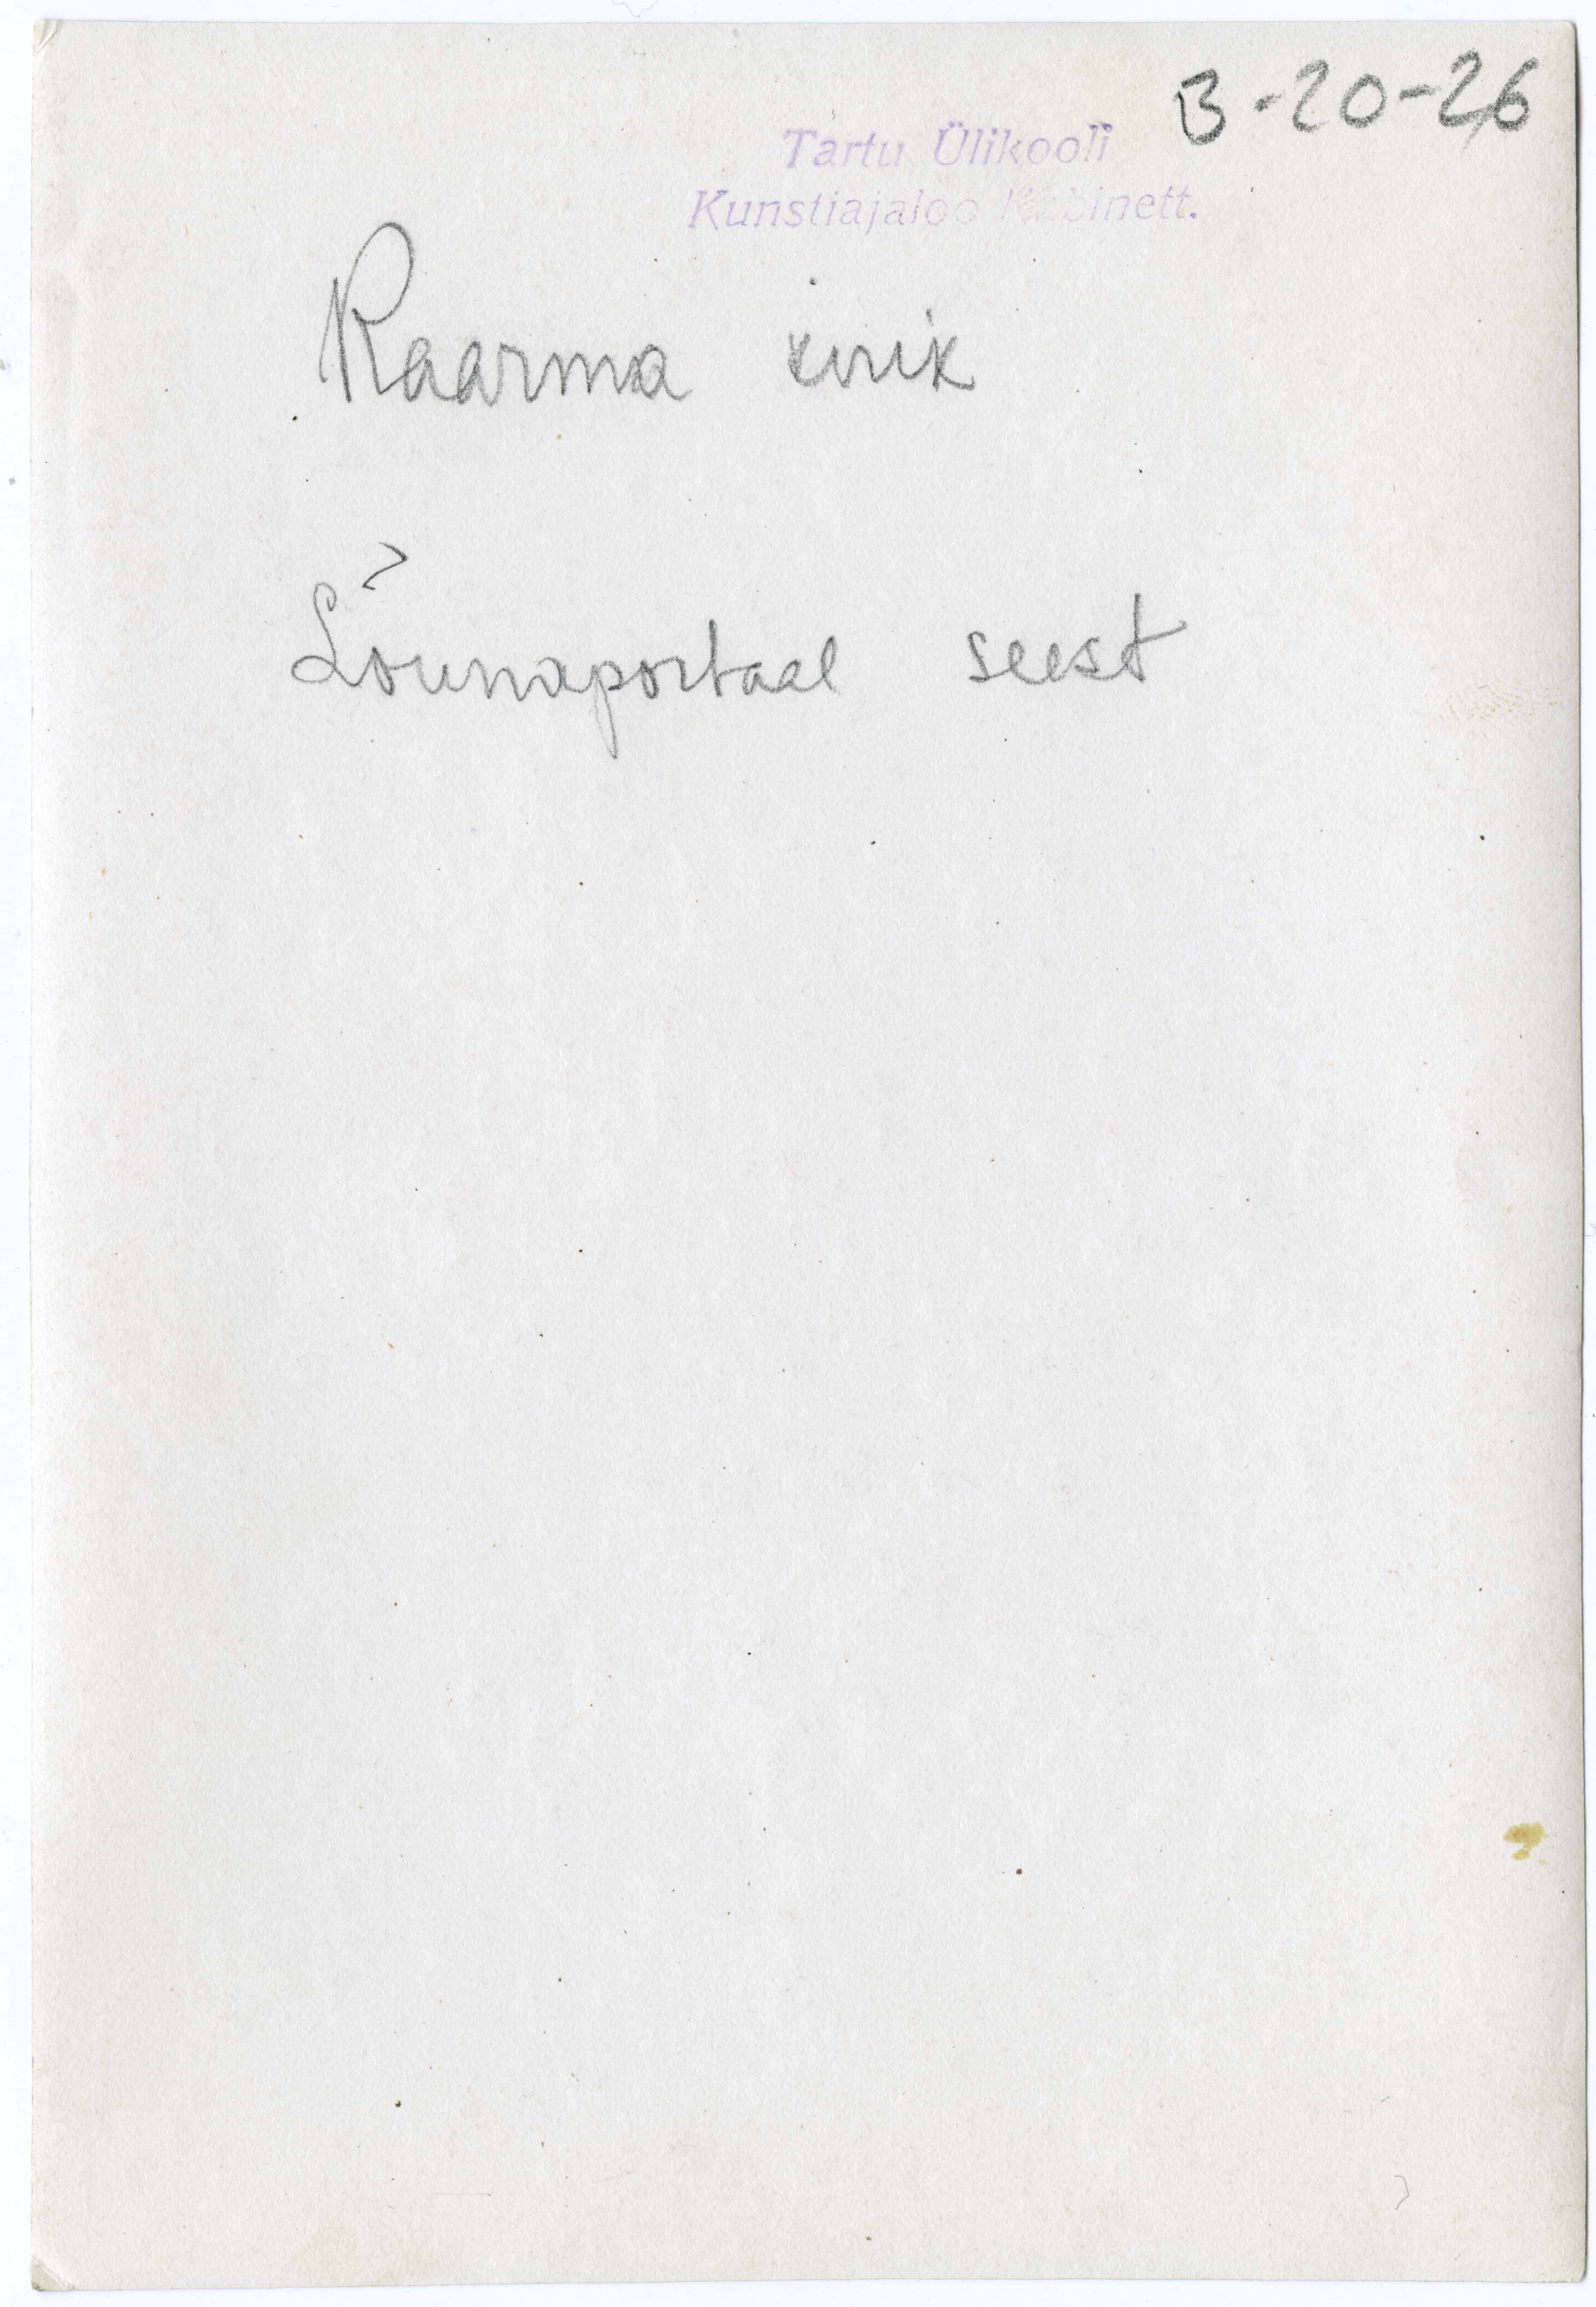 B-20-26
Tartu Ülikooli
Kunstiajaloo Kabinett.
Kaarma kirik
Lõunaportaal seest